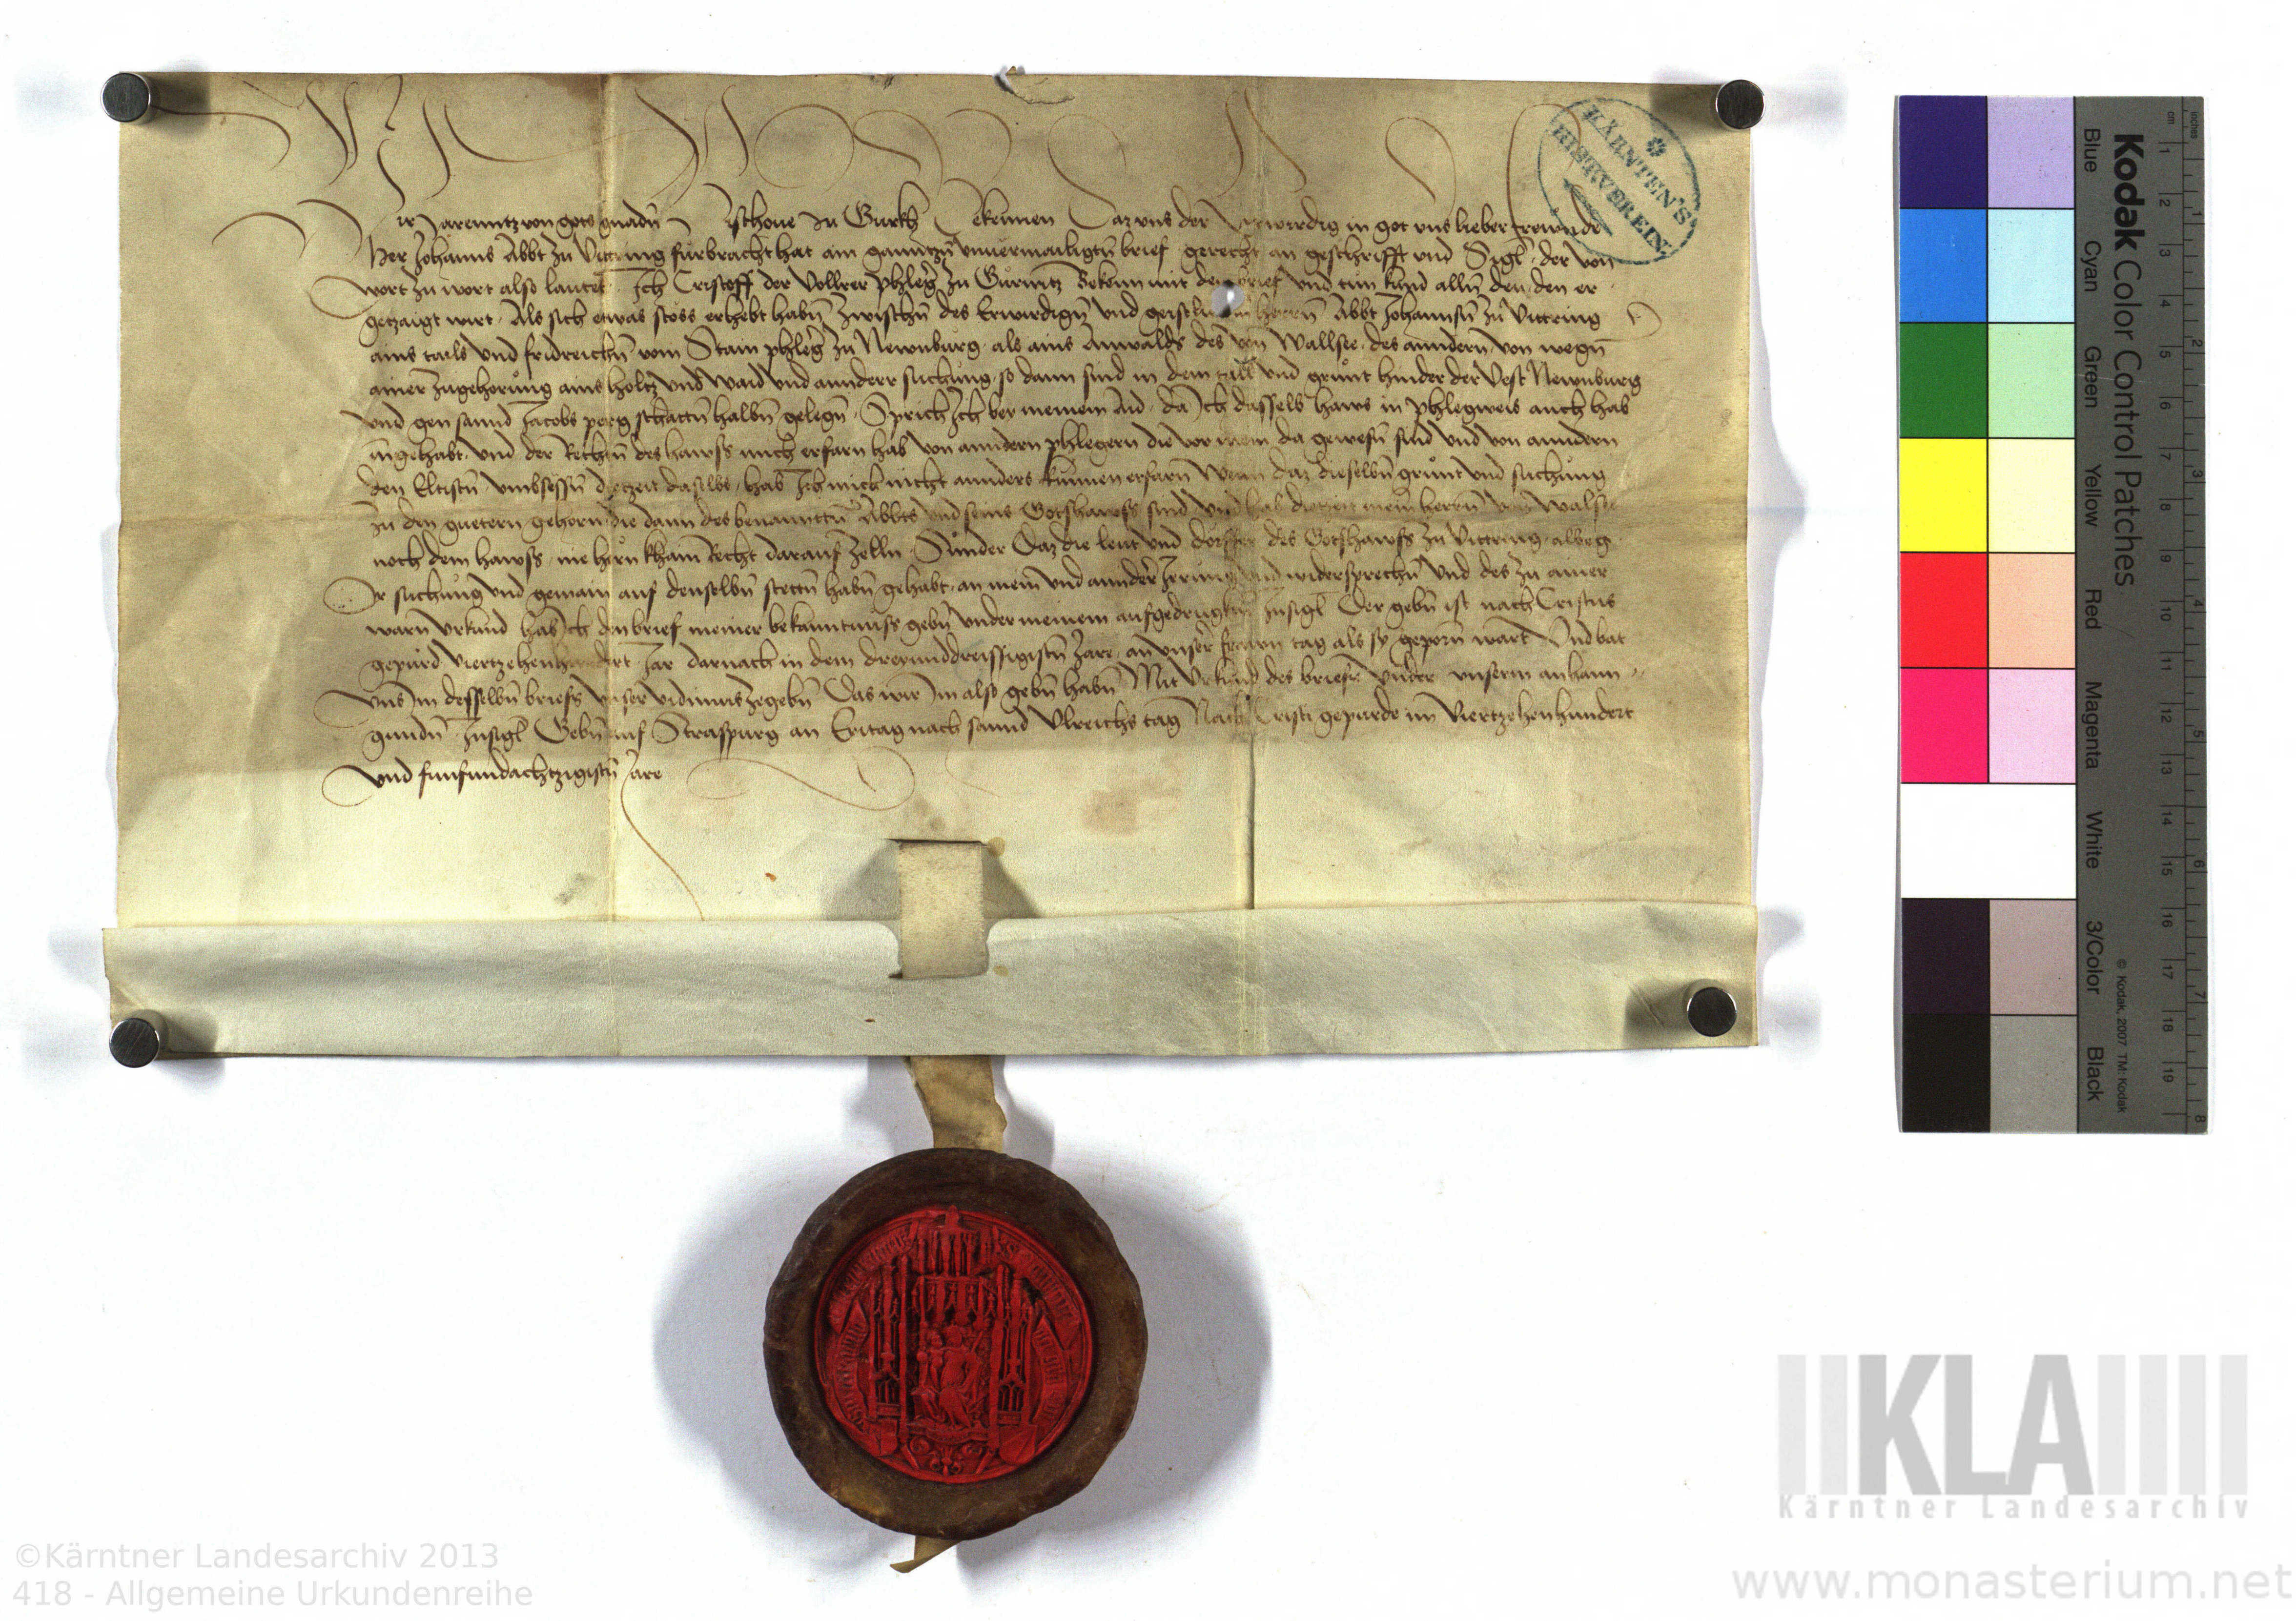 Wir Larenntz von gots gnadn̄ Bischoue zu Gurkh Bekennen Daz vns der Erwirdig in got vns lieber frewnde
Her Johanns Abbt zu Victring fürbracht hat ain ganntzn̄ vnuermailigtn̄ brief gerecht an geschrifft vnd Sigl̄ der von
wort zu wort also lautet Ich Cristoff der Vollrer phleḡer zu Gurnitz Bekenn mit dem brief vnd tun kund alln̄ den, den er
getzaigt wirt, Als sich etwas stöss erhebt habn̄ zwischn̄ des Erwirdign̄ vnd geistlichn̄ herrn̄ Abbt Johannsn̄ zu Victring
ains tails vnd fridreichn̄ vom Stain phleger zu Newnburg, als ains Anwalds des von Wallsee, des anndern, von wegn̄
ainer zugehorung ains holtz vnd waid vnd annderr suchung, so dann sind in dem tall vnd grünt hinder der Vest Newnburg
vnd gen sannd Jacobs perg schattn̄ halbn̄ gelegn̄, Sprich Ich bey meinem Aid, da Ich dasselb haws in phlegweis auch hab
Inngehabt, vnd der Rechtn̄ des hawss mich erfarn hab von anndern phlegern die vor mein da gewesn̄ sind vnd von anndern
den Eltistn̄, vmbsessn̄ dietzeit daselbs, hab Ich mich nicht annders künnen erfarn Wenn daz dieselbn̄ grünt vnd suchung
zu den guetern gehorn die dann des benanntn̄ Abbts vnd seins Gotshawss sind vnd hab dietzeit mein herrn̄ von Walsee
noch dem hawss, nie hörn kham Recht darauf zelln, Sünder Daz die leut vnd dörffer des Gotshawss zu Victring, albeg
Ir suchung vnd gemain auf denselbn̄ stettn̄ habn̄ gehabt, an mein vnd annder Irrung vnd widersprechn̄ Vnd des zu ainer
warn Vrkund hab Ich den brief meiner bekanntnuss gebn̄ vnder meinem aufgedrugktn̄ Insigl̄ Der gebn̄ ist nach Cristus
gepurd Viertzehenhundert Jar darnach in dem dreyunddreissigistn̄ Jare, an vnser frawn tag als sy geporn̄ wart Vnd bat
vns Im desselbn̄ briefs vnser vidimus zegebn̄ Das wir Im also gebn̄ habn̄ Mit Vrkund des briefs vnder vnserm anhann-
gundn̄ Insigl̄ Gebn̄ auf Straspurg an Eritag nach sannd Vlreichs tag Nach Cristi gepurde im Viertzehenhundert
vnd funfundachtzigistn̄ Jare
KÄRNTEN'S
HIST. VEREIN
Kodak Color Control Patches
Blue Cyan Green Yellow Red Magenta White 3/Color Black
© Kodak, 2007 TM: Kodak
inches 1 2 3 4 5 6 7 8
cm 1 2 3 4 5 6 7 8 9 10 11 12 13 14 15 16 17 18 19
KLA
Kärntner Landesarchiv
©Kärntner Landesarchiv 2013
418 - Allgemeine Urkundenreihe
www.monasterium.net